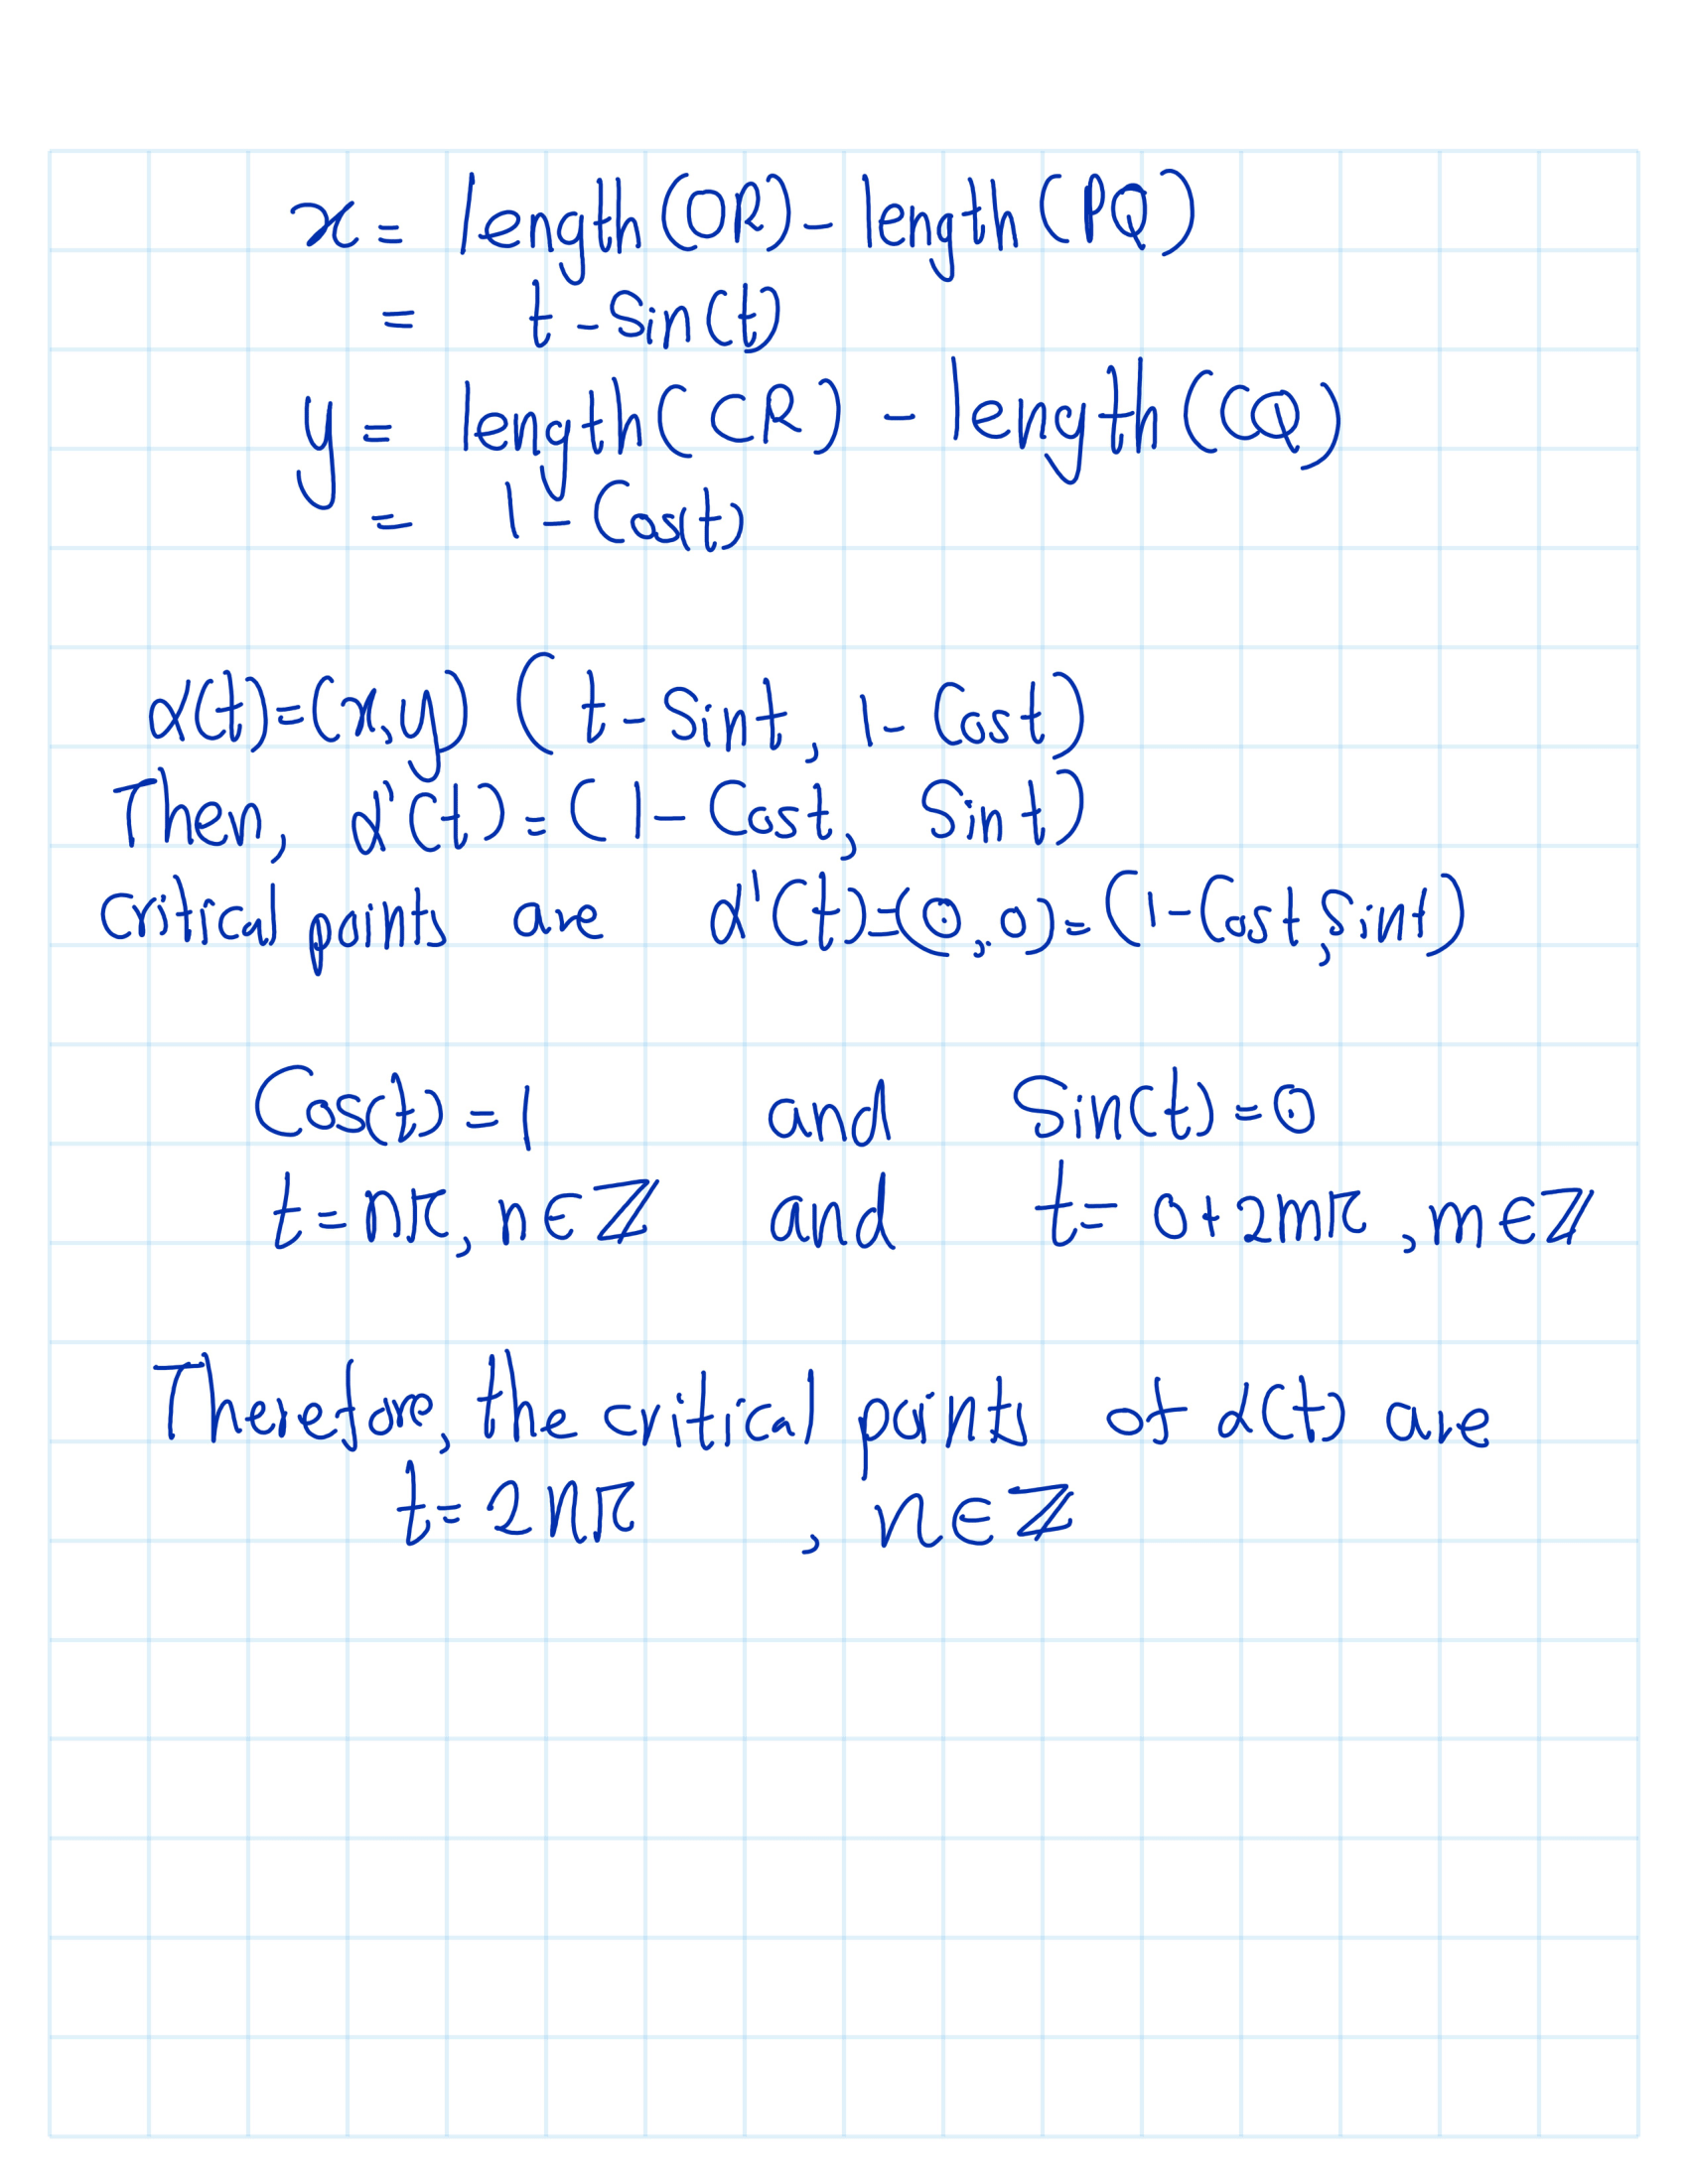 x = length(OR) - length(PQ)
= t - Sin(t)
y = length(CR) - length(CQ)
= 1 - Cos(t)
α(t)=(x,y) ( t - Sint, 1 - Cost)
Then, α'(t)=(1 - Cost, Sint)
critical points are α'(t)=(0,0)=(1-Cost,Sint)
Cos(t)=1 and Sin(t)=0
t=nπ, n∈ℤ and t= 0+2mπ, m∈ℤ
Therefore, the critical points of α(t) are
t=2nπ , n∈ℤ